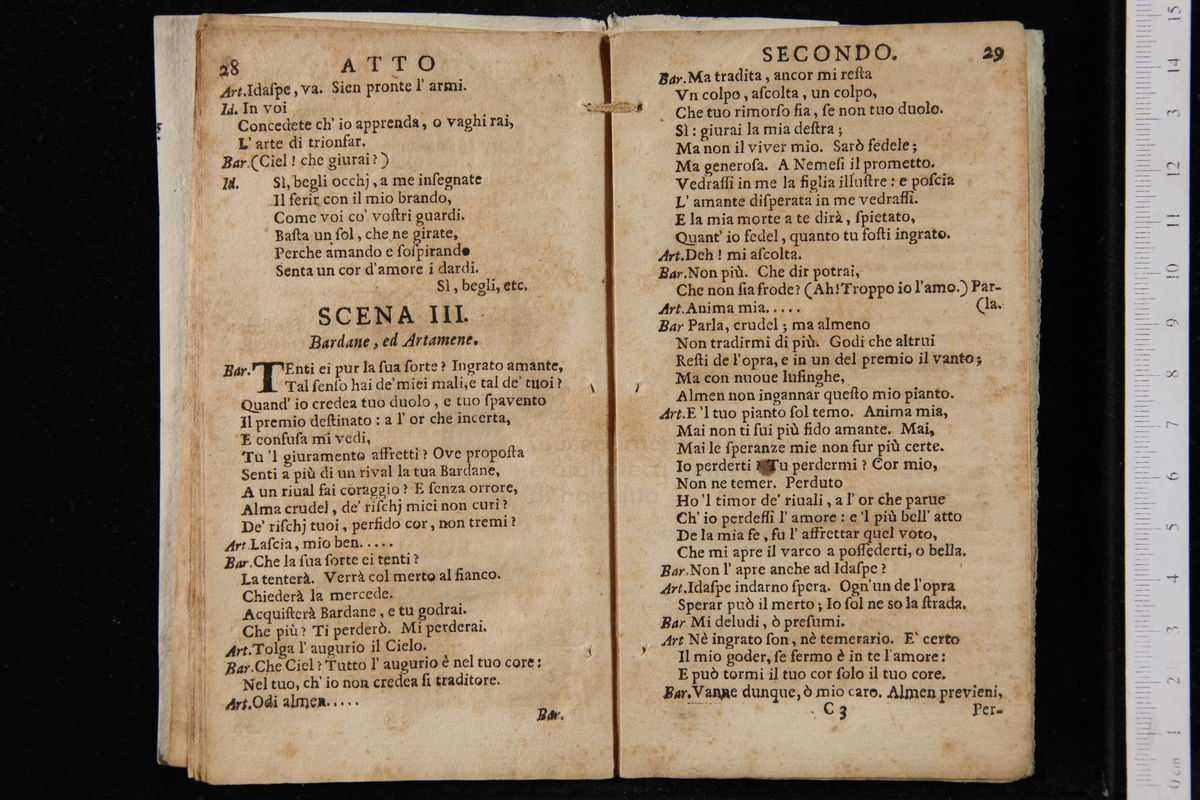 28 ATTO
Art.Idaſpe, va. Sien pronte l' armi.
Id. In voi
Concedete ch' io apprenda, o vaghi rai,
L' arte di trionfar.
Bar.(Ciel! che giurai?)
Id. Sì, begli occhj, a me inſegnate
Il ferir con il mio brando,
Come voi co' voſtri guardi.
Baſta un ſol, che ne girate,
Perche amando e ſoſpirando
Senta un cor d'amore i dardi.
Sì, begli, etc.
SCENA III.
Bardane, ed Artamene.
Bar. TEnti ei pur la ſua ſorte? Ingrato amante,
Tal ſenſo hai de' miei mali, e tal de' tuoi?
Quand' io credea tuo duolo, e tuo ſpavento
Il premio deſtinato: a l' or che incerta,
E confuſa mi vedi,
Tu 'l giuramento affretti? Ove propoſta
Senti a più di un rival la tua Bardane,
A un riual fai coraggio? E ſenza orrore,
Alma crudel, de' riſchj miei non curi?
De' riſchj tuoi, perfido cor, non tremi?
Art.Laſcia, mio ben.....
Bar.Che la ſua ſorte ei tenti?
La tenterà. Verrà col merto al fianco.
Chiederà la mercede.
Acquiſterà Bardane, e tu godrai.
Che più? Ti perderò. Mi perderai.
Art.Tolga l' augurio il Cielo.
Bar.Che Ciel? Tutto l' augurio è nel tuo core:
Nel tuo, ch' io non credea ſi traditore.
Art.Odi almen.....
Bar.
SECONDO. 29
Bar.Ma tradita, ancor mi reſta
Vn colpo, aſcolta, un colpo,
Che tuo rimorſo ſia, ſe non tuo duolo.
Sì: giurai la mia deſtra;
Ma non il viver mio. Sarò fedele;
Ma generoſa. A Nemeſi il prometto.
Vedraſſi in me la figlia illuſtre: e poſcia
L' amante diſperata in me vedraſſi.
E la mia morte a te dirà, ſpietato,
Quant' io fedel, quanto tu foſti ingrato.
Art.Deh! mi aſcolta.
Bar.Non più. Che dir potrai,
Che non ſia frode? (Ah! Troppo io l'amo.) Par-
Art.Anima mia..... (la.
Bar Parla, crudel; ma almeno
Non tradirmi di più. Godi che altrui
Reſti de l'opra, e in un del premio il vanto;
Ma con nuoue luſinghe,
Almen non ingannar queſto mio pianto.
Art.E 'l tuo pianto ſol temo. Anima mia,
Mai non ti fui più fido amante. Mai,
Mai le ſperanze mie non fur più certe.
Io perderti? Tu perdermi? Cor mio,
Non ne temer. Perduto
Ho 'l timor de' riuali, a l' or che parue
Ch' io perdeſſi l' amore: e 'l più bell' atto
De la mia fe, fu l' affrettar quel voto,
Che mi apre il varco a poſſederti, o bella.
Bar.Non l' apre anche ad Idaſpe?
Art.Idaſpe indarno ſpera. Ogn'un de l'opra
Sperar può il merto; Io ſol ne so la ſtrada.
Bar Mi deludi, ò preſumi.
Art Nè ingrato ſon, nè temerario. E' certo
Il mio goder, ſe fermo è in te l'amore:
E può tormi il tuo cor ſolo il tuo core.
Bar.Vanne dunque, ò mio caro. Almen previeni,
C 3 Per-
15
14
13
12
11
10
9
8
7
6
5
4
3
2
1
0 cm